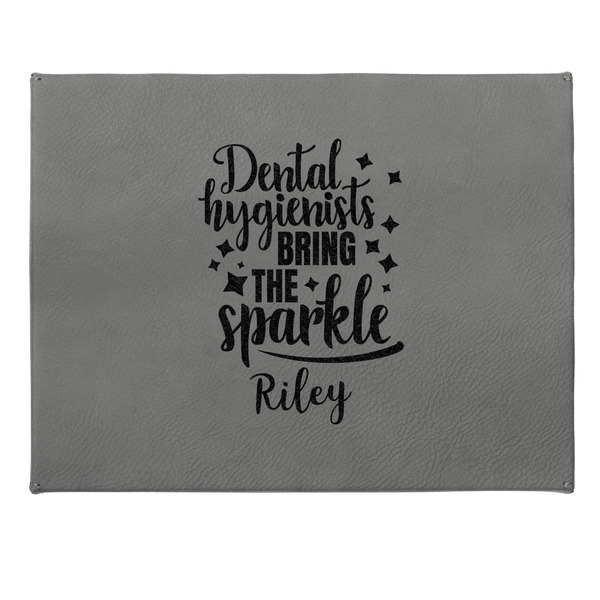 Dental
hygienists
BRING
THE
sparkle
Riley